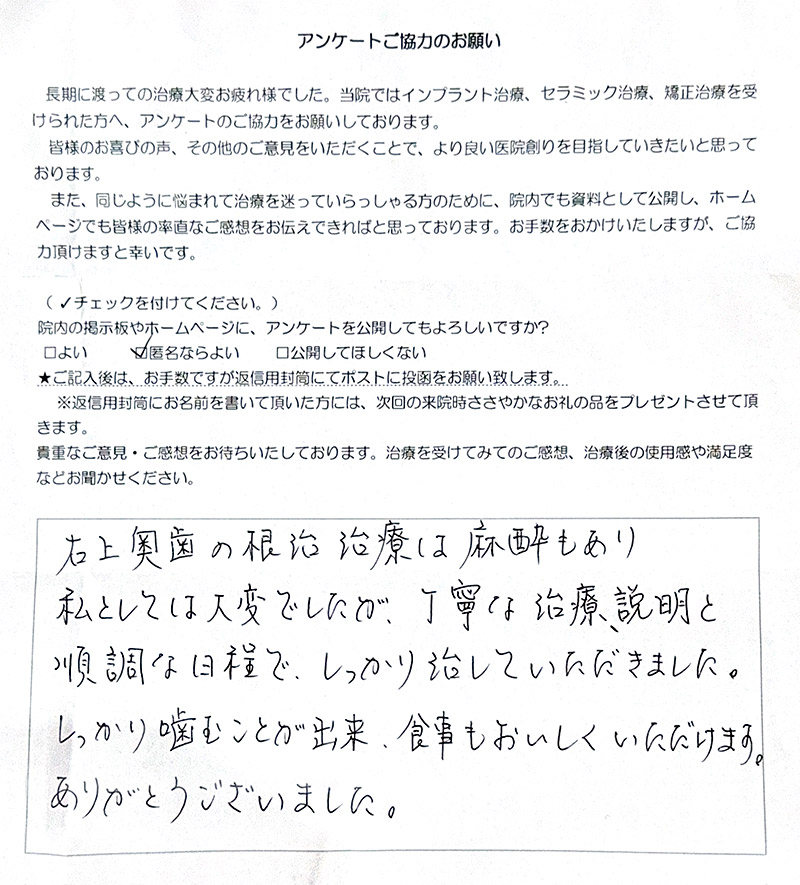 アンケートご協力のお願い
長期に渡っての治療大変お疲れ様でした。当院ではインプラント治療、セラミック治療、矯正治療を受
けられた方へ、アンケートのご協力をお願いしております。
皆様のお喜びの声、その他のご意見をいただくことで、より良い医院創りを目指していきたいと思って
おります。
また、同じように悩まれて治療を迷っていらっしゃる方のために、院内でも資料として公開し、ホーム
ページでも皆様の率直なご感想をお伝えできればと思っております。お手数をおかけいたしますが、ご協
力頂けますと幸いです。
（ ✓チェックを付けてください。）
院内の掲示板やホームページに、アンケートを公開してもよろしいですか?
□よい ☑匿名ならよい □公開してほしくない
★ご記入後は、お手数ですが返信用封筒にてポストに投函をお願い致します。
※返信用封筒にお名前を書いて頂いた方には、次回の来院時ささやかなお礼の品をプレゼントさせて頂
きます。
貴重なご意見・ご感想をお待ちいたしております。治療を受けてみてのご感想、治療後の使用感や満足度
などお聞かせください。
右上奥歯の根治治療は麻酔もあり
私としては大変でしたが、丁寧な治療、説明と
順調な日程で、しっかり治していただきました。
しっかり噛むことが出来、食事もおいしくいただけます。
ありがとうございました。